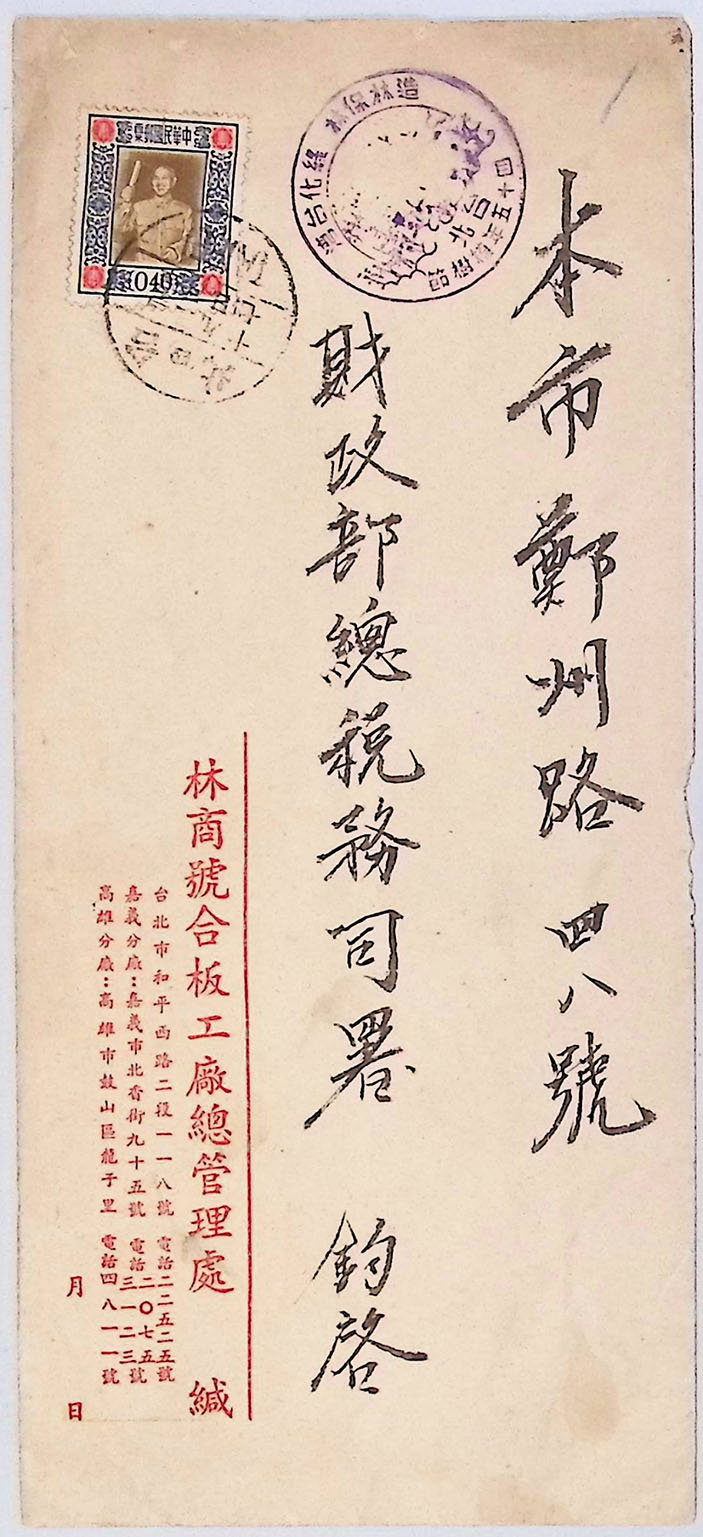 本市鄭州路四八號
財政部總稅務司署 鈞啓
林商號合板工廠總管理處 緘
台北市和平西路二段一一八號 電話二二五二五號
嘉義分廠：嘉義市北香街九十五號 電話二〇七五 三一二三號
高雄分廠：高雄市鼓山區龍子里 電話四八一一號
月 日
中華民國郵票
040
造林保林 綠化台灣